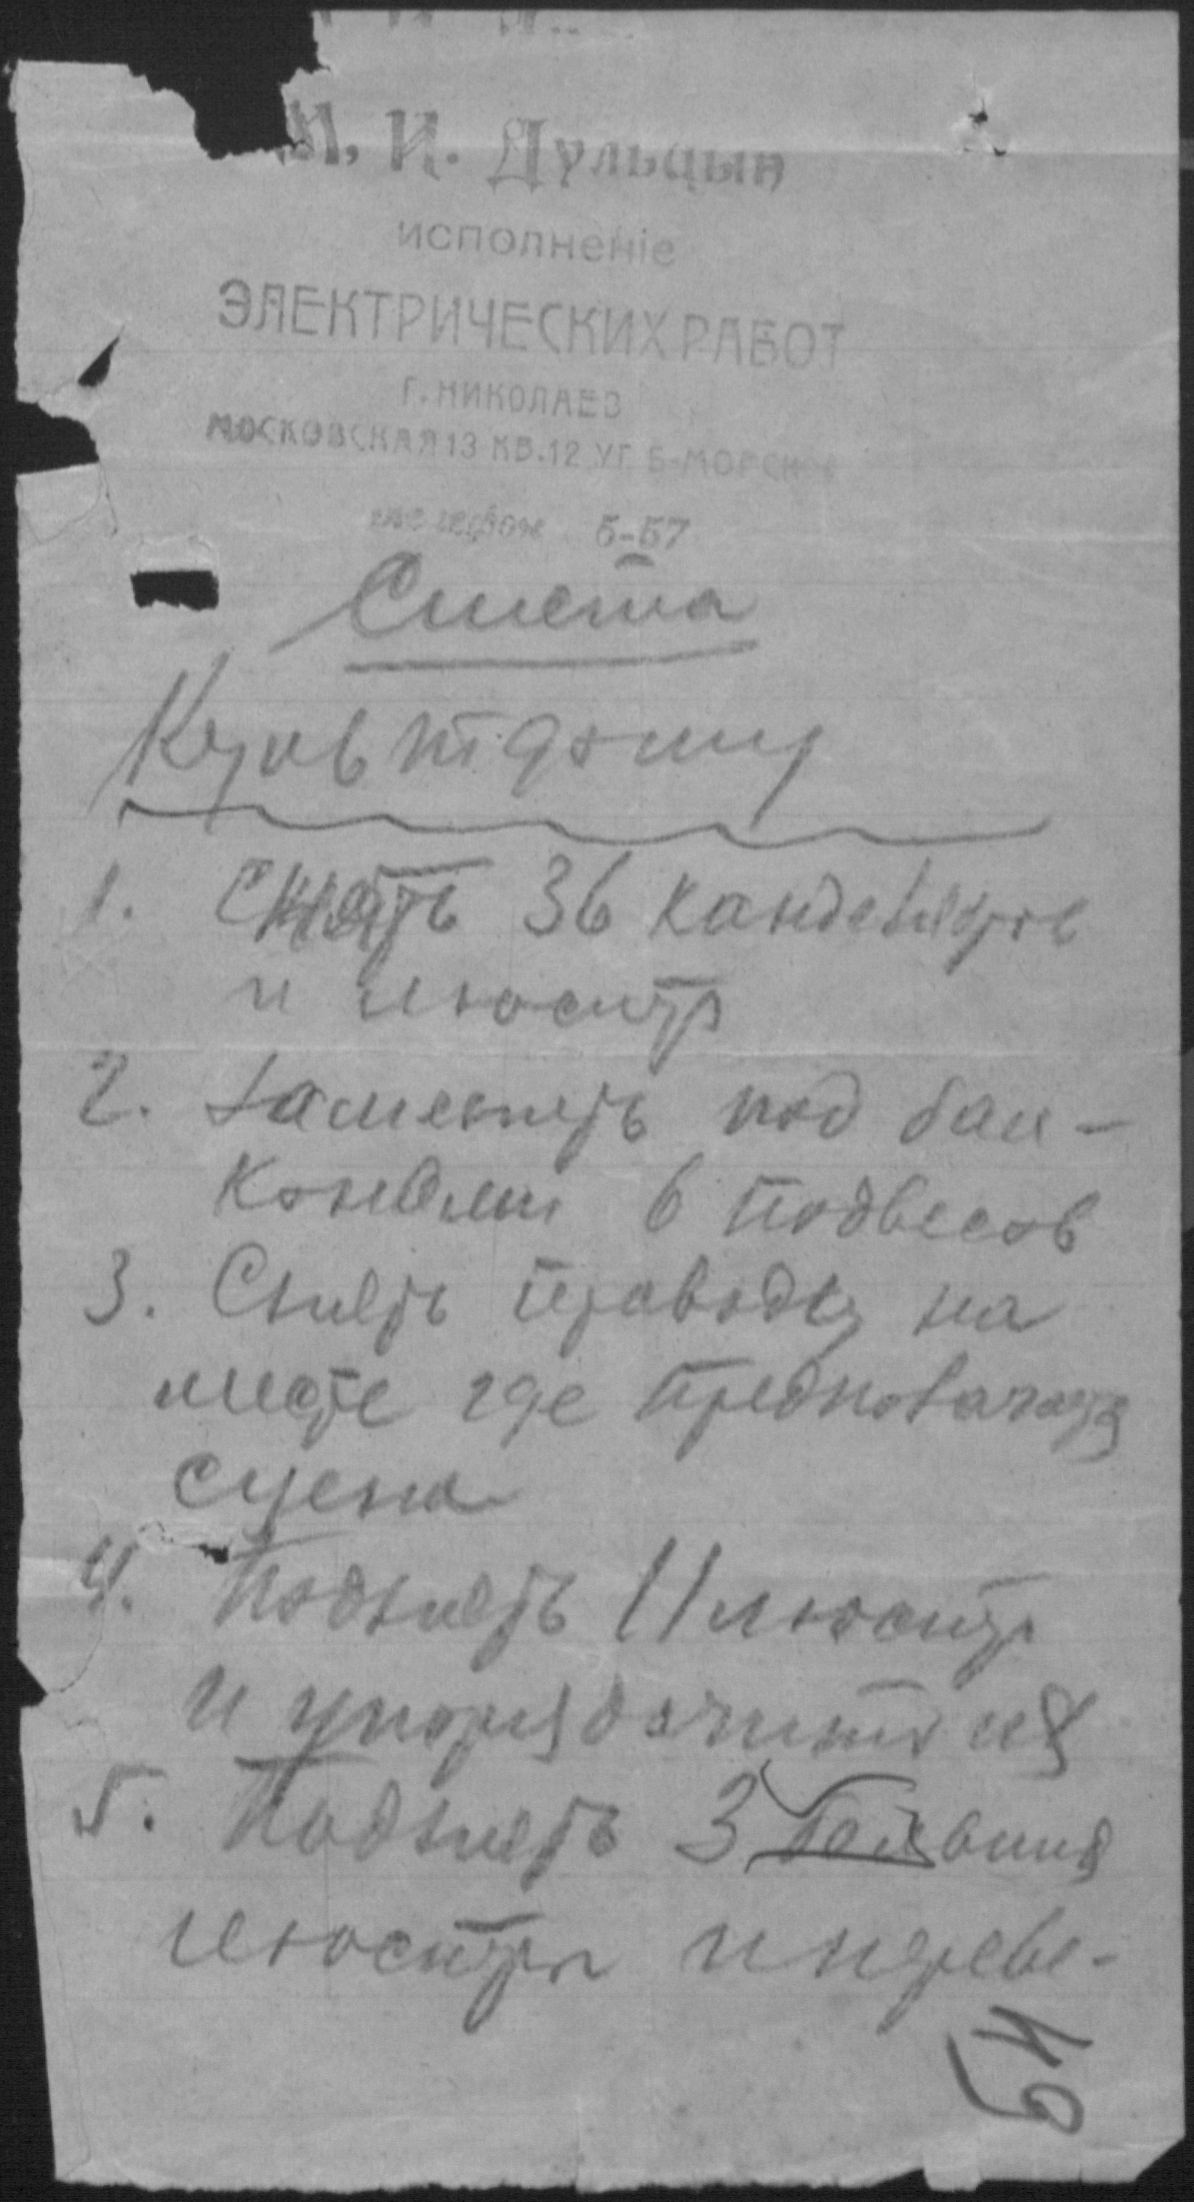 М. И. Дульцын
исполненіе
ЭЛЕКТРИЧЕСКИХ РАБОТ
Г. НИКОЛАЕВ
МОСКОВСКАЯ 13 КВ. 12 УГ. Б-МОРСКОЙ
телефон 5-57
Смета
Культдому
1. Снять 36 канделябров
и люстр
2. Заменить под бал-
конами 6 подвесов
3. Снять проводку на
месте где
сцена
4. Поднять 11 люстр
и упорядочить их
5. Поднять 3 больших
люстры и переве-
49